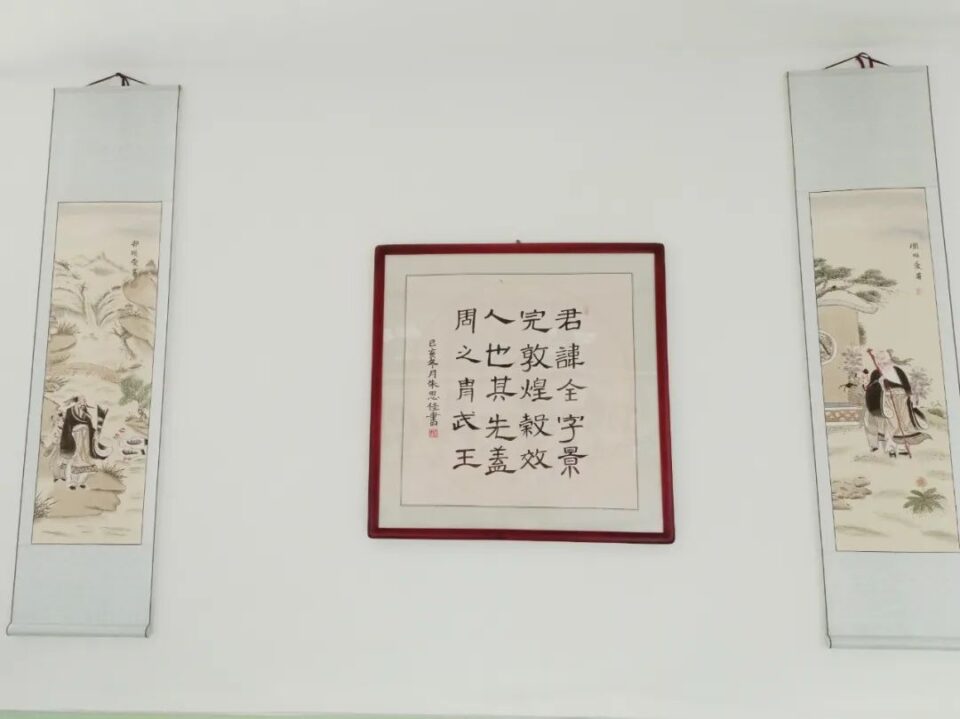 君諱全字景
完敦煌穀效
人也其先蓋
周之胄武王
己亥冬月朱思書